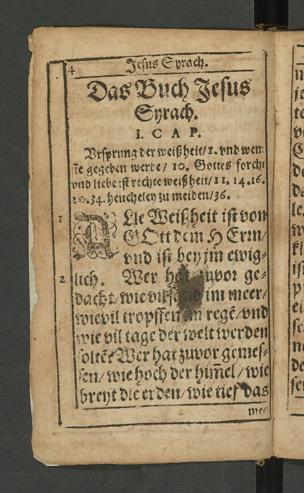 4 Jesus Syrach.
Das Buch Jesus
Syrach.
I. CAP.
Vrsprung der weißheit/1. vnd wem
sie gegeben werde/10. Gottes forcht
vnd liebe ist rechte weißheit/11.14.16.
20.34. heuchelen zu meiden/36.
1 ALle Weißheit ist von
GOtt dem HErrn/
vnd ist bey jm ewig-
2 lich. Wer hat zuvor ge-
dacht/wie vil sand im meer/
wie vil tropffen im regẽ/vnd
wie vil tage der welt werden
soltẽ? Wer hat zuvor gemes-
sen/wie hoch der him̃el/wie
breyt die erden/wie tief das
me/